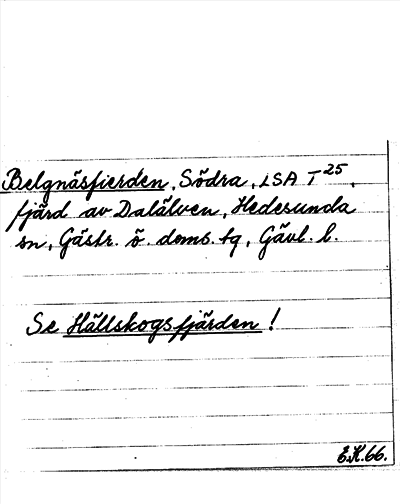 Belgnäsfierden, Södra, LSA T 25,
fjärd av Dalälven, Hedesunda
sn, Gästr. ö. doms. tg, Gävl. l.
Se Hällskogsfjärden!
E.K.66.